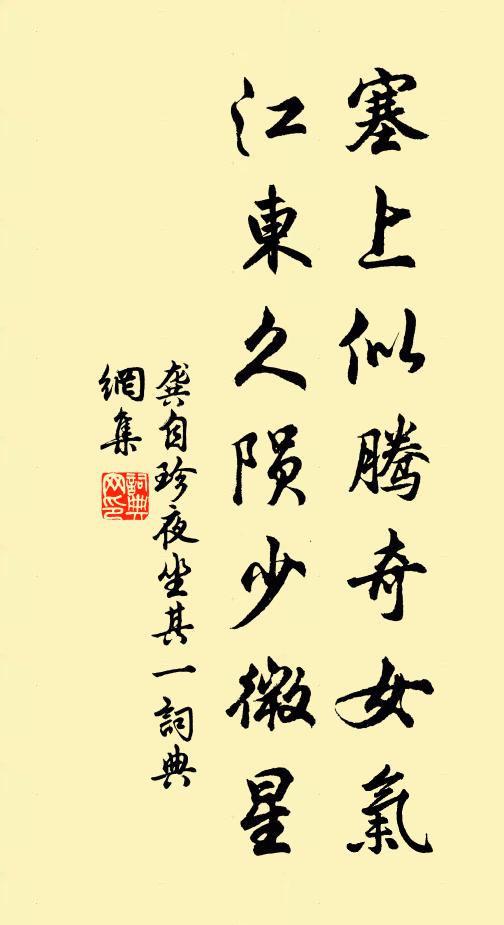 塞上似騰奇女氣
江東久陨少微星
龚自珍夜坐其一詞典
網集
詞典
网印